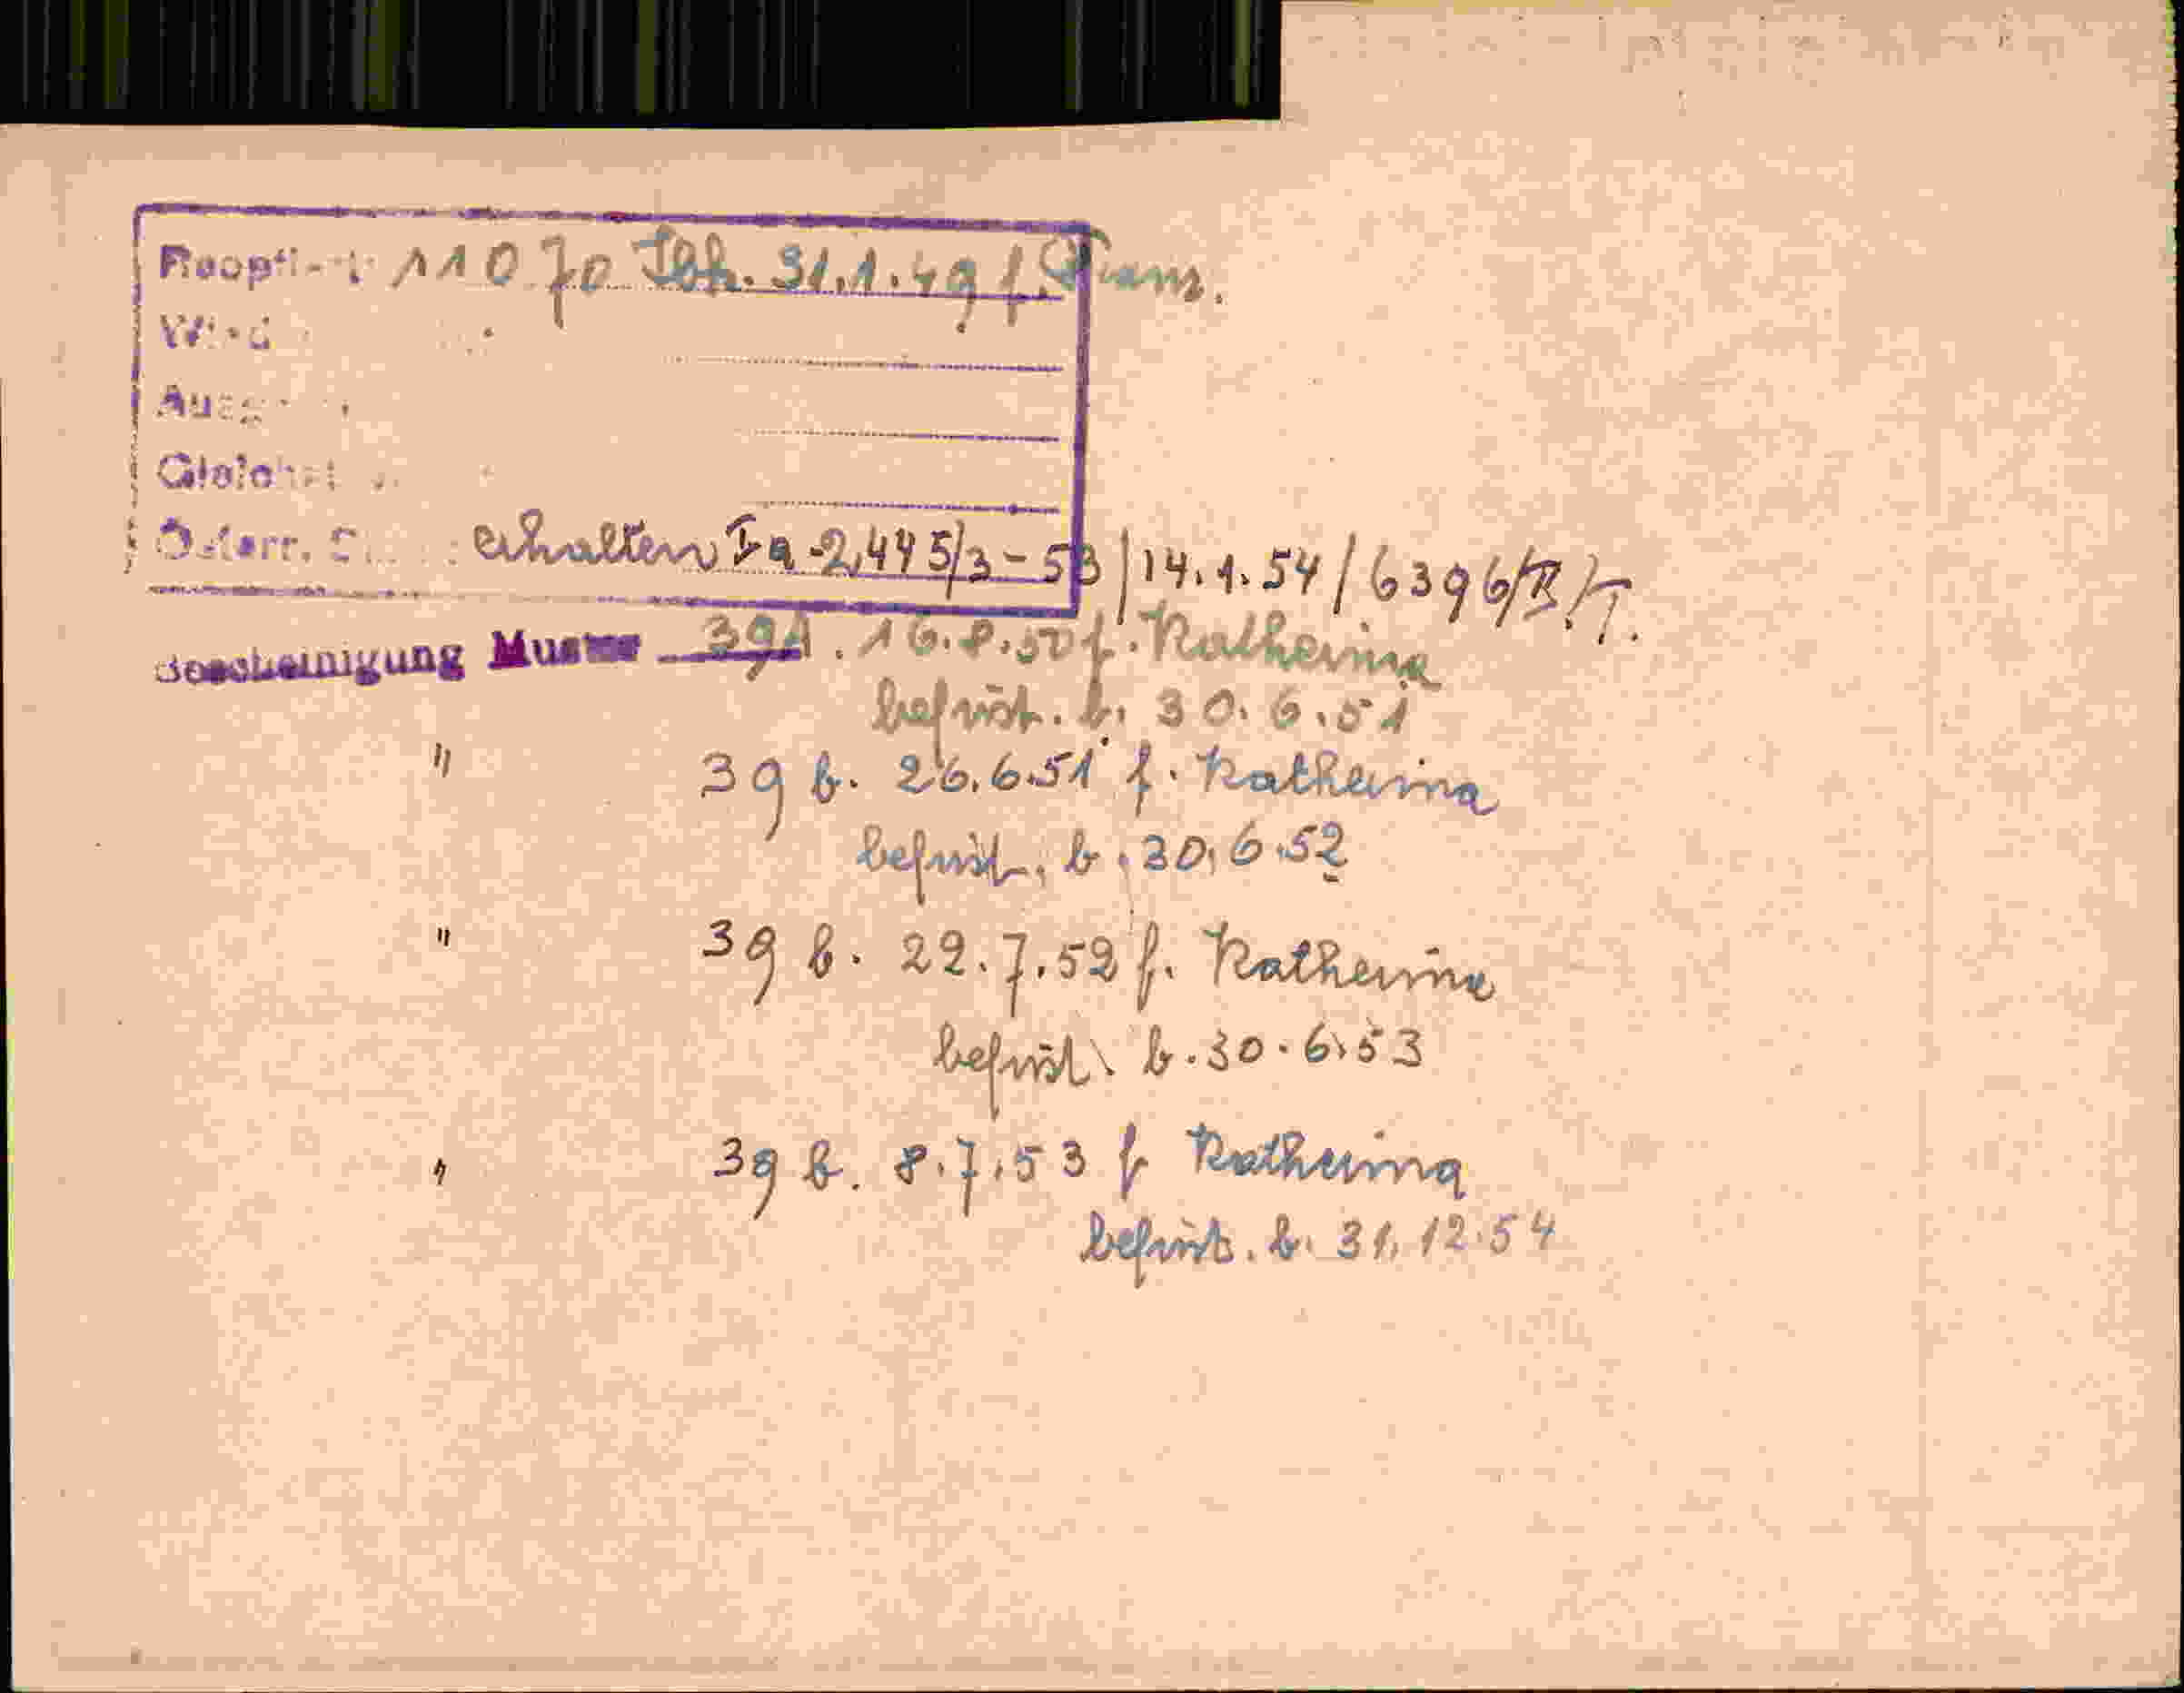 11070 Ibk. 31.1.49 f. Franz.
Österr. erhalten Ia-2,445/3-53/14.1.54/6396/B/T.
Bescheinigung Muster 39A. 16.8.50 f. Katherina
befrist. b. 30.6.51
" 39 b. 26.6.51 f. Katherina
befrist. b. 30.6.52
" 39 b. 22.7.52 f. Katherina
befrist. b. 30.6.53
" 39 b. 8.7.53 f Katherina
befrist. b. 31.12.54